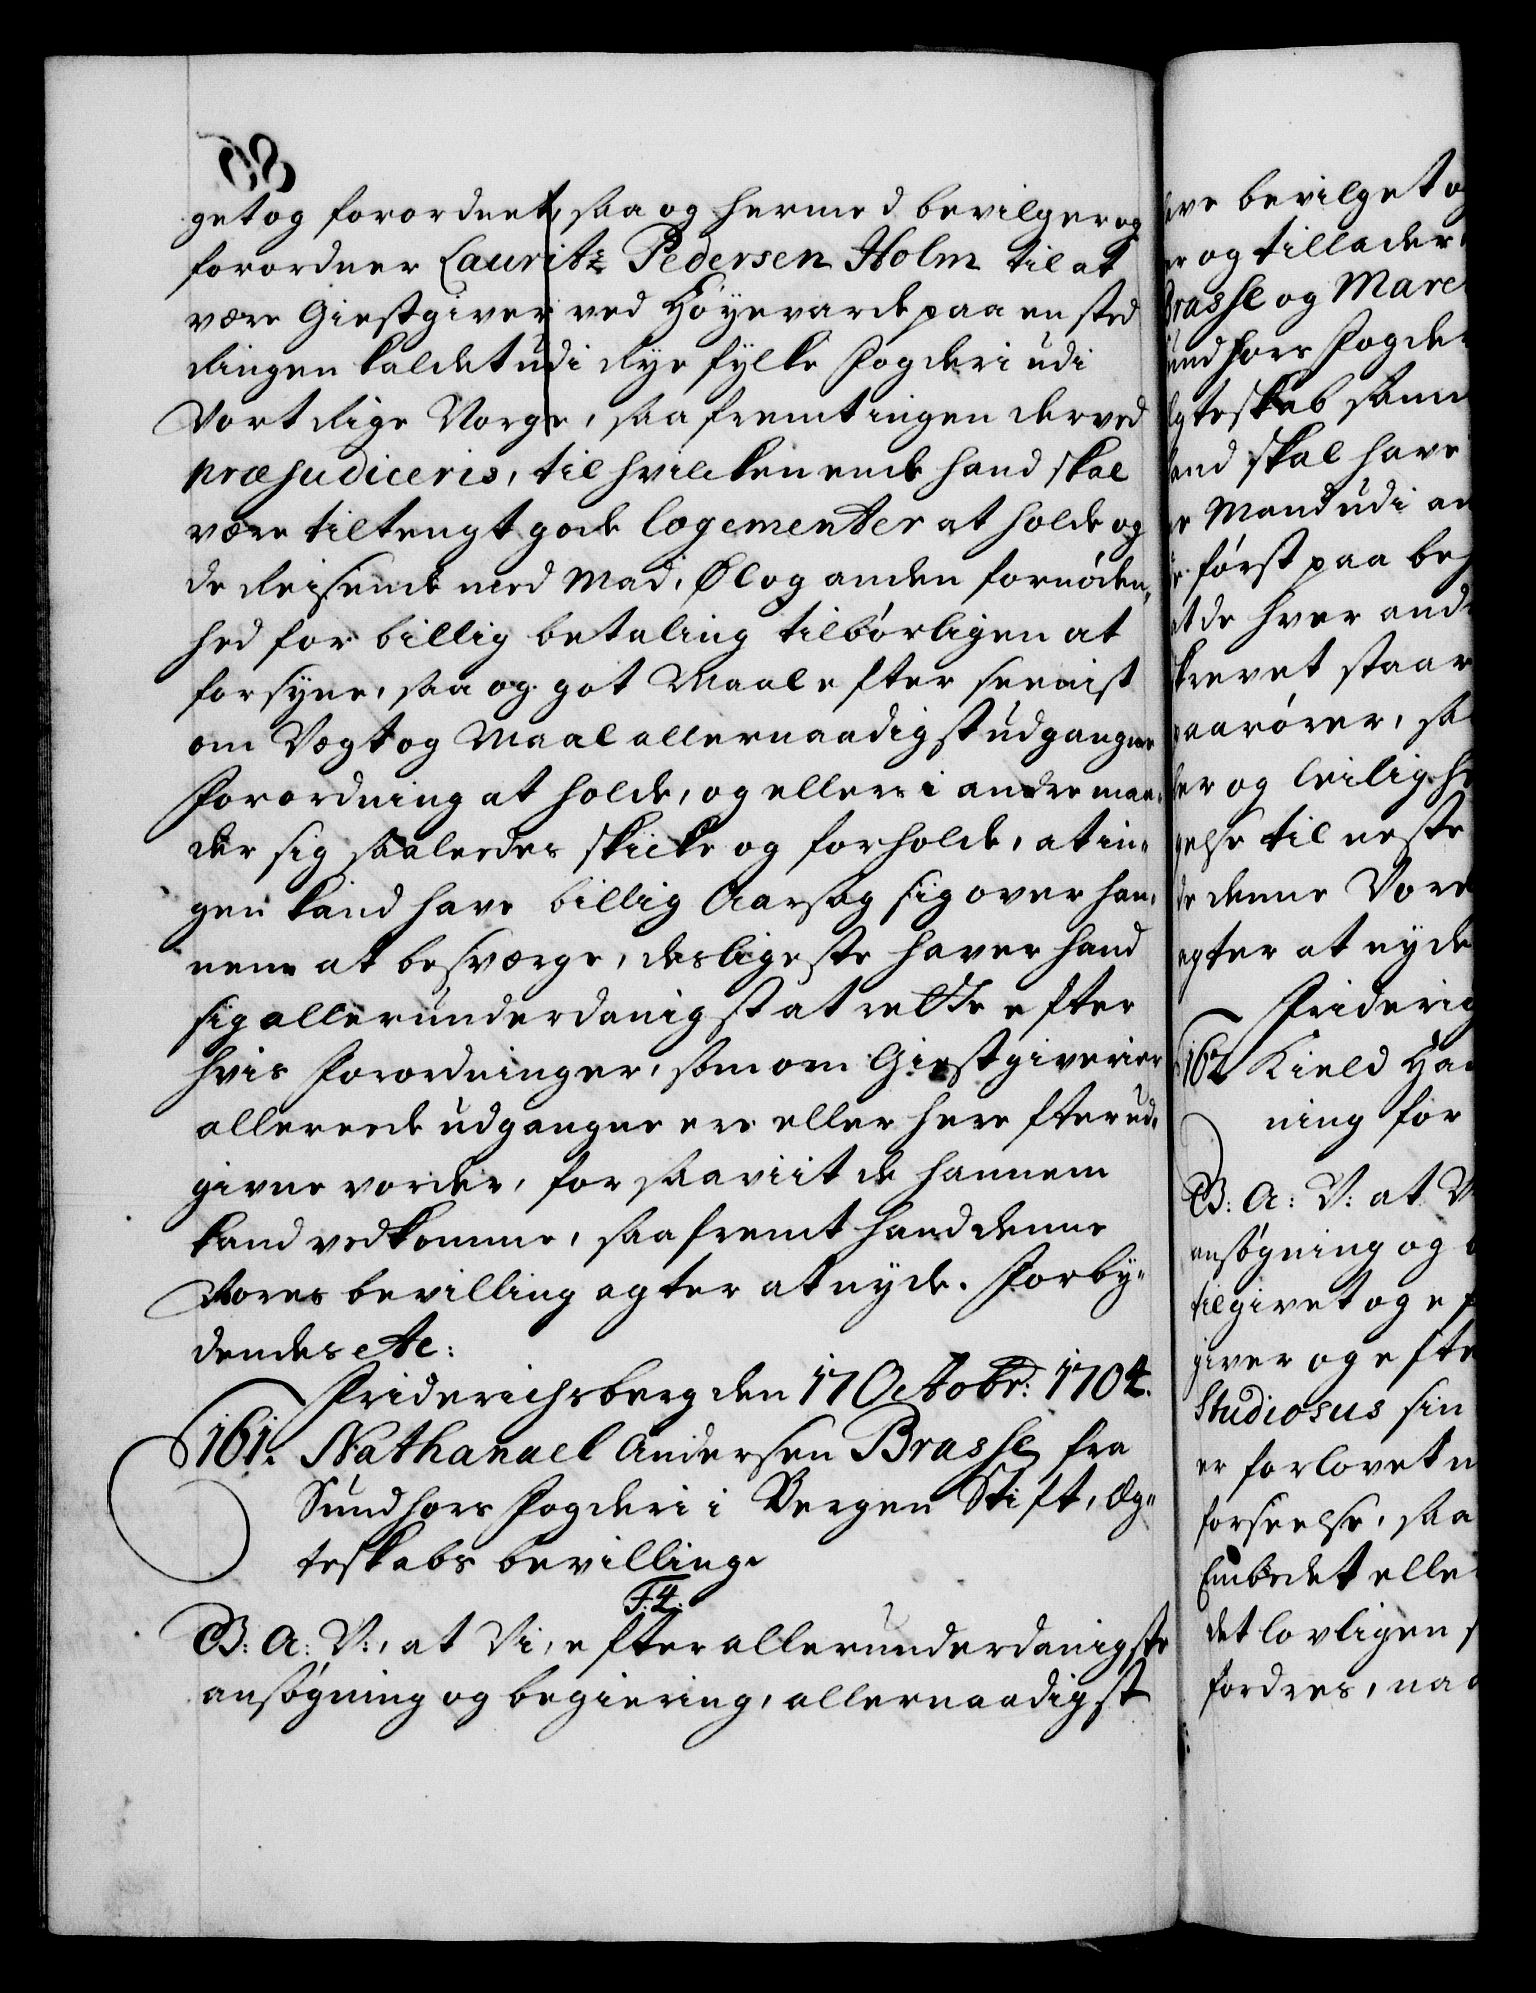 get og forordnet, saa og hermed bevilger og
forordner Lauritz Pedersen Holm til at
være Giestgiver ved Høyevarde paa en sted
Ringen kaldet udi Rye fylke Fogderi udi
Vort Rige Norge, saafremt ingen derved
præjudiceris, til hvilcken ende hand skal
være tiltengt gode logementer at holde og
de Reisende med Mad, Øl og anden fornøden,,
hed for billig betaling tilbørligen at
forsyne, saa og got Maal efter seenist
om Vægt og Maal allernaadigst udgangne
Forordning at holde, og ellers i andre maa,,
der sig saaledes skicke og forholde, at in,,
gen kand have billig Aarsag sig over han,,
nem at besværge, desligeste haver hand
sig allerunderdanigst at rette efter
hvis Forordninger, som om Giestgiverier
allereede udgangne ere eller herefter ud,,
givne vorder, for saaviit de hannem
kand vedkomme, saafremt hand denne
Vores bevilling agter at nyde. Forby,,
dendes etc:
Friderichsberg den 17 Octobr: 1704.
161. Nathanael Andersen Brasse fra
Sundhors Fogderi i Bergen Stift, Æg,,
teskabs bevilling.
F:4:
G: A: V:, at Vi, efter allerunderdanigste
ansøgning og begiering, allernaadigst
bevilget og
og tillader
Brasse og Mare
Fogde
skal have
Mand udi an
først paa
de hver and
staar
og leilighe
til neste
denne Vore
agter at nyde
Friderig
162 Kield Ha
ning for
G: A: V: at V
ansøgning og
tilgivet og ef
giver og efte
Studiosus sin
er forlovet
forseelse, saa
Embedet elle
det lovligen
fordres, naa